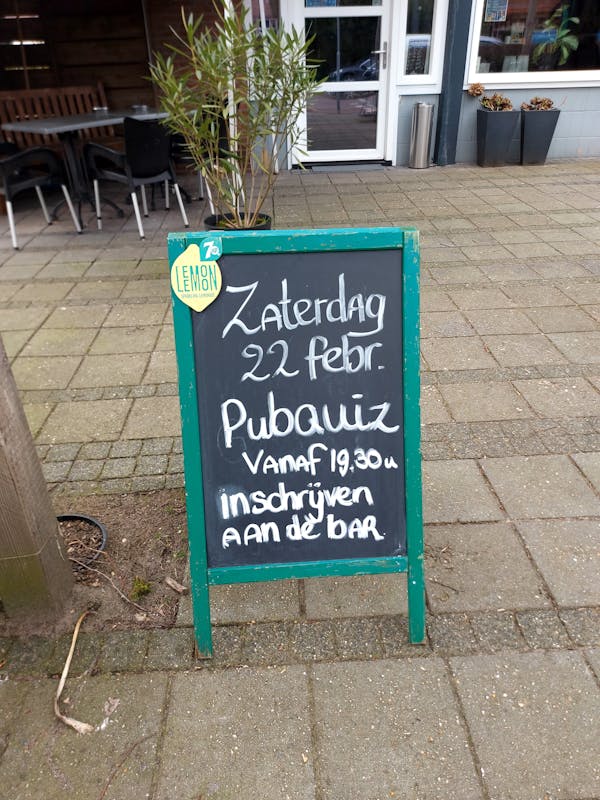 7up
LEMON
LEMON
Zaterdag
22 febr.
Pubquiz
Vanaf 19.30u
inschrijven
aan de bar